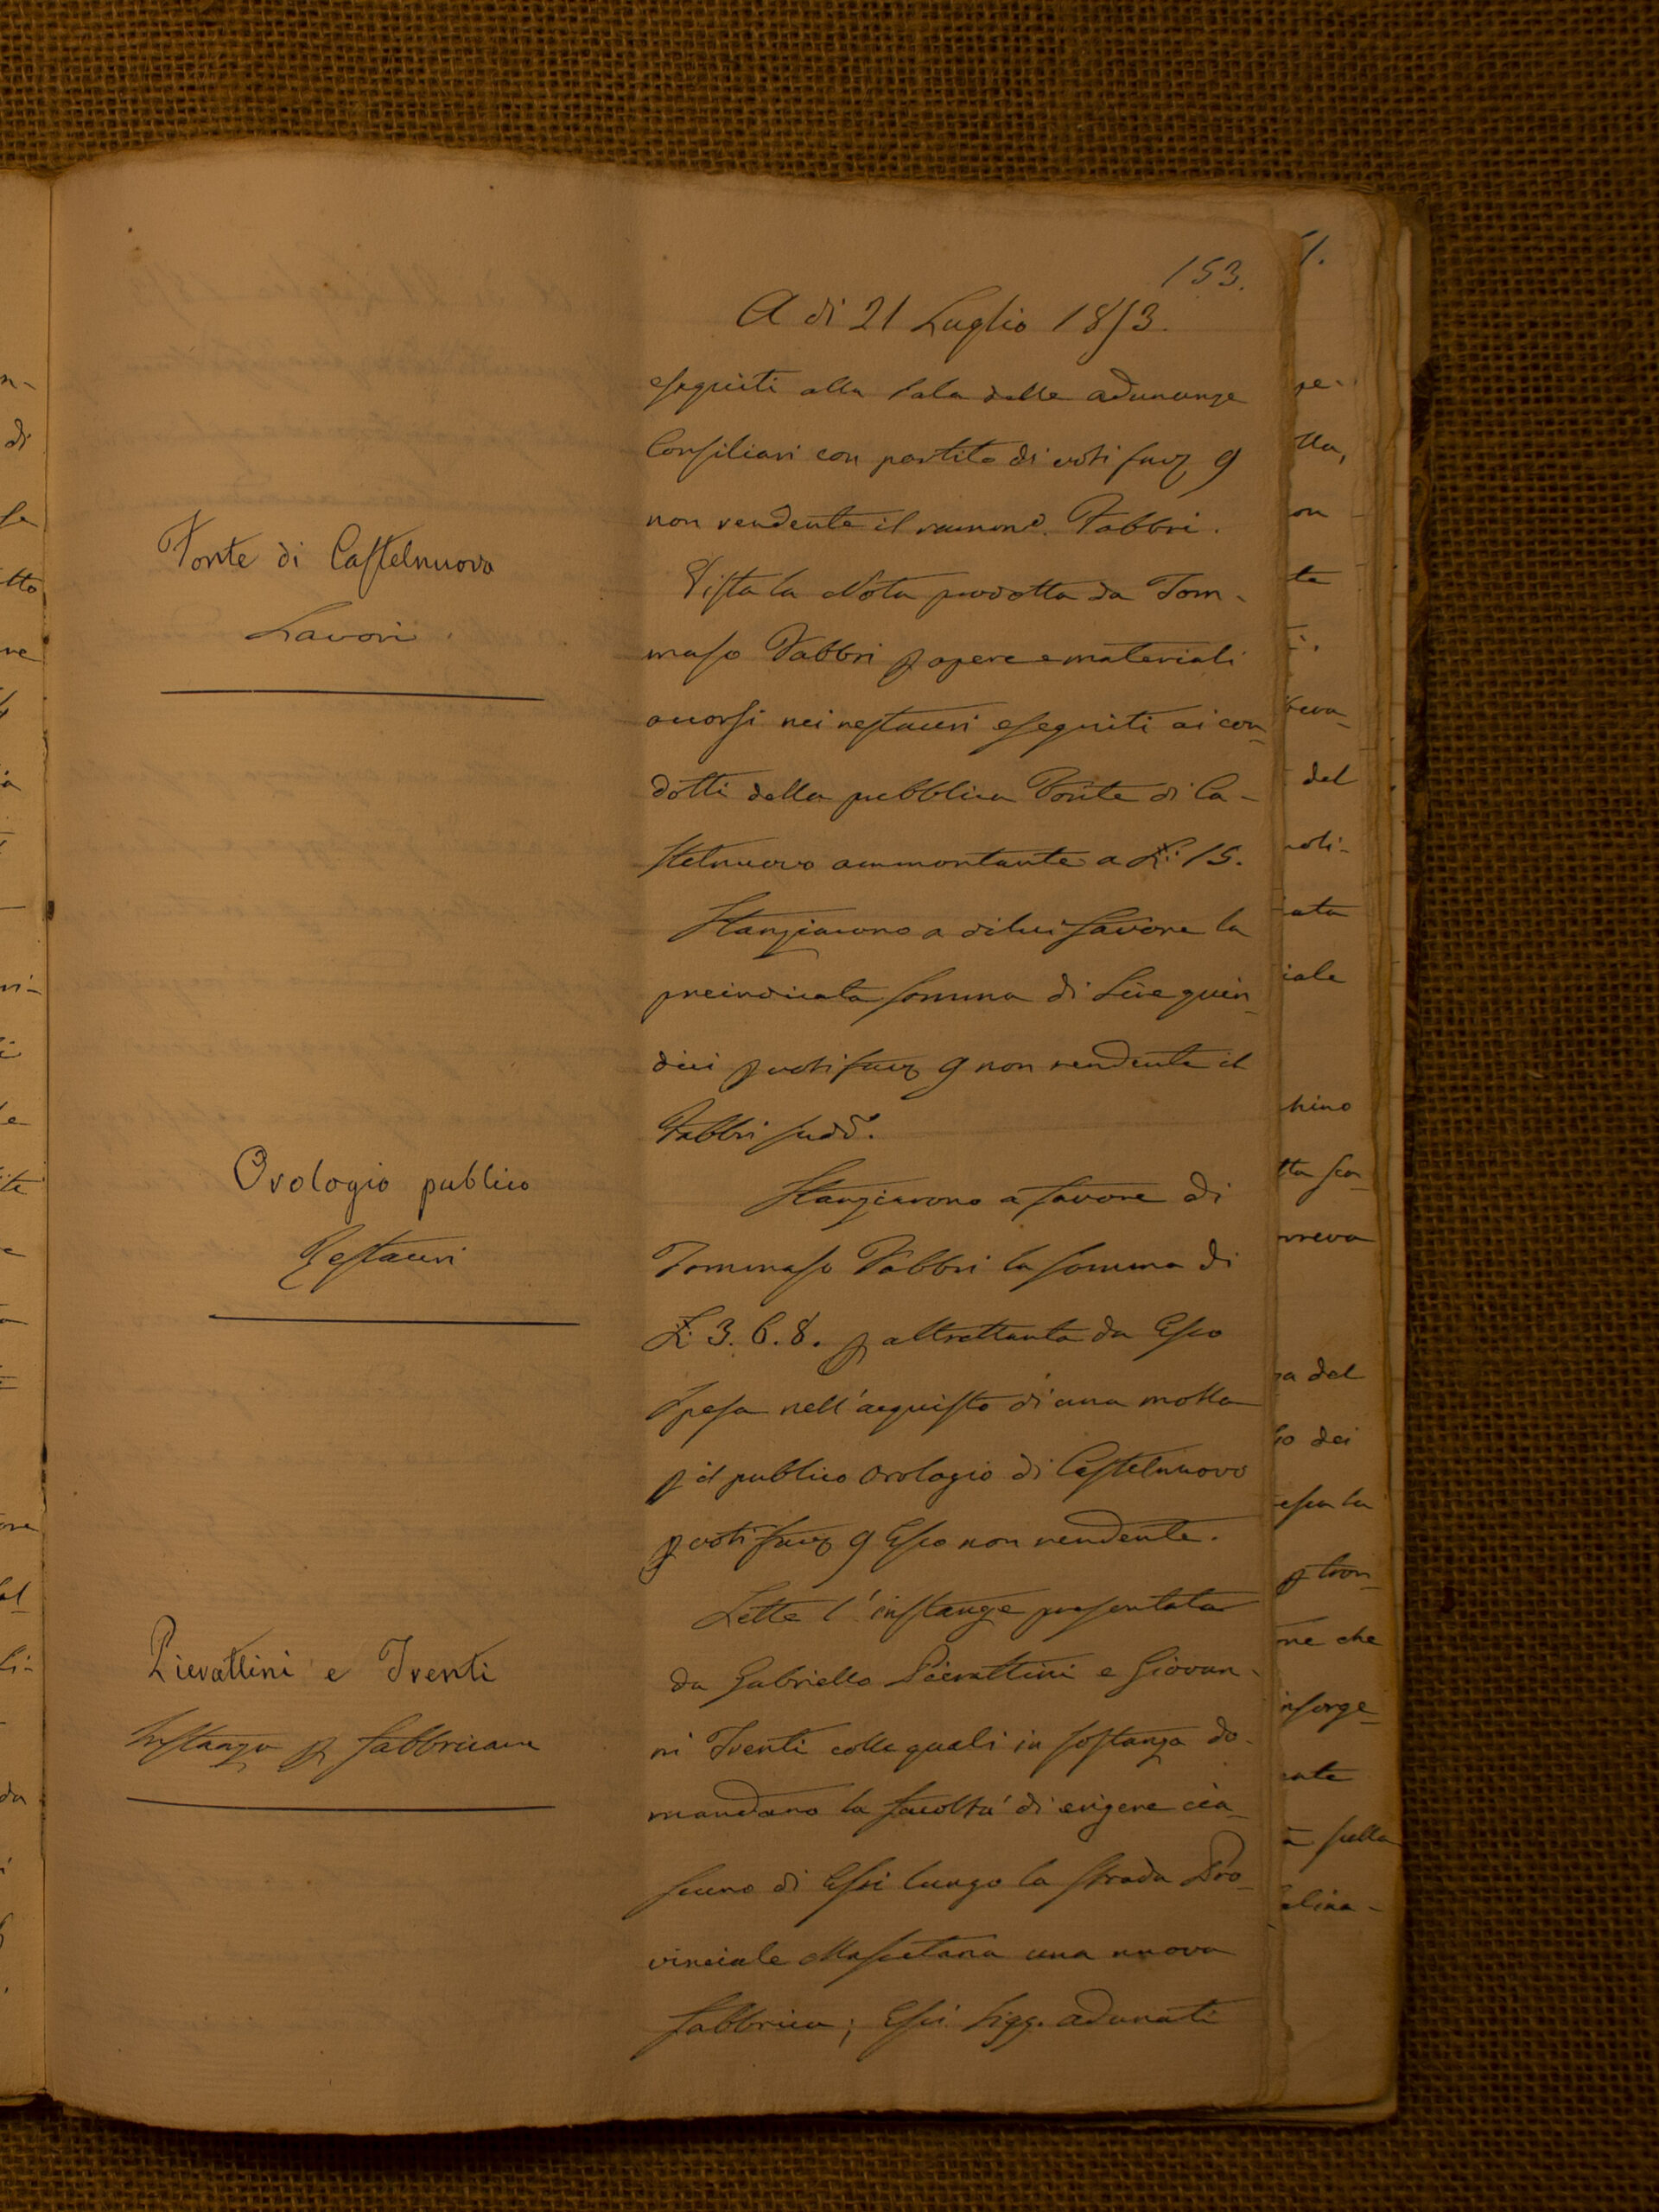 153.
A di 21 Luglio 1853.
eseguiti alla Sala delle adunanze
Consiliari con partito di voti fav. 9
non rendente il Fabbri.
Fonte di Castelnuovo
Lavori.
Vista la Nota prodotta da Tom-
maso Fabbri p opere e materiali
occorsi nei restauri eseguiti ai con-
dotti della pubblica Fonte di Ca-
stelnuovo ammontante a £: 15.
Stanziarono a di lui favore la
preindicata somma di Lire quin-
dici p voti fav. 9 non rendente il
Fabbri sudd.
Orologio publico
Restauri
Stanziarono a favore di
Tommaso Fabbri la somma di
£: 3. 6. 8. p altrettanta da Esso
spesa nell'acquisto di una molla
p il publico orologio di Castelnuovo
p voti fav. 9 Esso non rendente.
Pierattini e Trenti
Instanza p fabbricare
Lette l'instanze presentate
da Gabriello Pierattini e Giovan-
ni Trenti colle quali in sostanza do-
mandano la facoltà di erigere cia-
scuno di Essi lungo la strada Pro-
vinciale Massetana una nuova
fabbrica; Essi Sigg. adunati